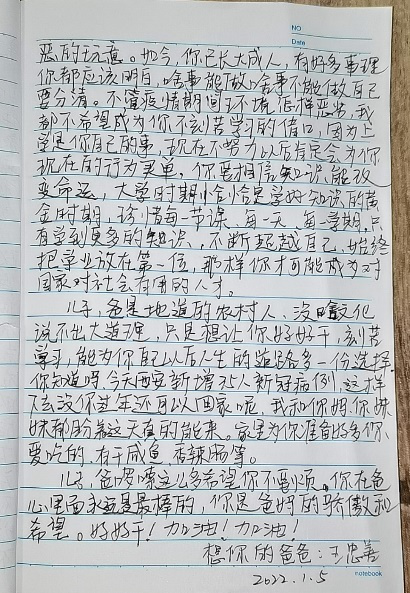 NO
Date
恶的玩意。如今,你已长大成人,有好多事理
你都应该明白,啥事能做啥事不能做自己
要分清。不管疫情期间环境怎样恶劣,我
都不希望成为你不刻苦学习的借口,因为上
学是你自己的事,现在不努力以后肯定会为你
现在的行为买单,你要相信知识能改
变命运,大学时期恰恰是学好知识的黄
金时期,珍惜每一节课,每一天,每一学期,只
有学到更多的知识,不断超越自己,始终
把学业放在第一位,那样你才可能成为对
国家对社会有用的人才。
儿子,爸是地道的农村人、没啥文化
说不出大道理,只是想让你好好干,刻苦
学习,能为你自己以后人生的道路多一份选择.
你知道吗,今天西安新增35人新冠病例,这样
下去没你过年还可以回家呢,我和你妈,你妹
妹都盼着这天真的能来。家里为你准备好多你
爱吃的,有干咸鱼、香辣肠等。
儿子,爸啰嗦这么多希望你不要烦。你在爸
心里面永远是最棒的,你是爸妈的骄傲和
希望。好好干!加油!加油!
想你的爸爸:王忠善
2022.1.5
notebook